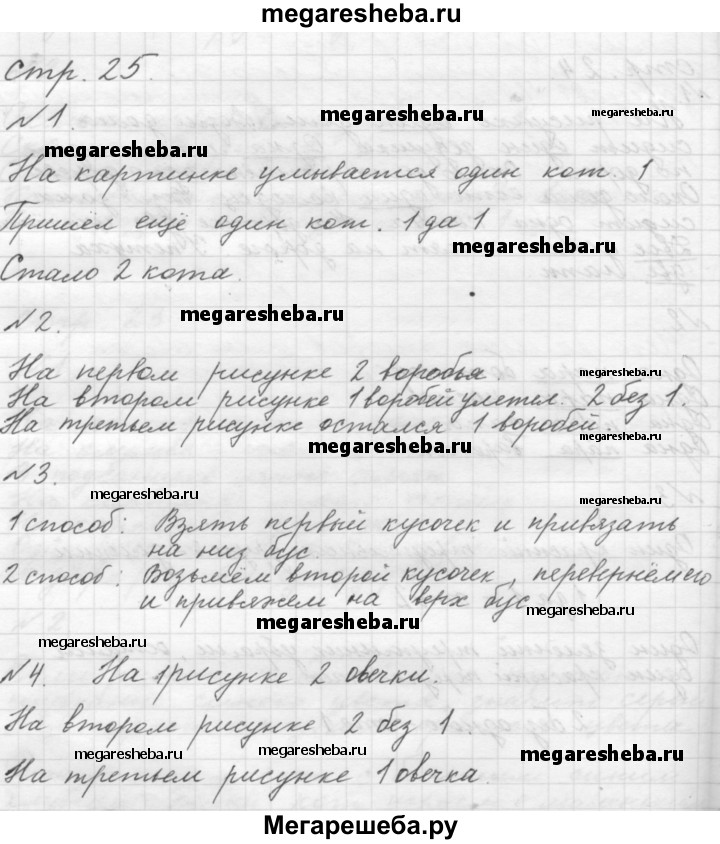 megaresheba.ru
стр. 25.
№1.
megaresheba.ru
megaresheba.ru
megaresheba.ru
На картинке умывается один кот. 1
Пришёл ещё один кот. 1 да 1
megaresheba.ru
Стало 2 кота.
megaresheba.ru
megaresheba.ru
№2.
На первом рисунке 2 воробья.
megaresheba.ru
На втором рисунке 1 воробей улетел. 2 без 1.
На третьем рисунке остался 1 воробей.
megaresheba.ru
megaresheba.ru
№3.
megaresheba.ru
megaresheba.ru
1 способ: Взять первый кусочек и привязать
на низ бус.
megaresheba.ru
2 способ: Возьмём второй кусочек, перевернём его
и привяжем на верх бус
megaresheba.ru
megaresheba.ru
megaresheba.ru
№4. На 1 рисунке 2 овечки.
На втором рисунке 2 без 1.
megaresheba.ru
megaresheba.ru
megaresheba.ru
На третьем рисунке 1 овечка.
Мегарешеба.ру